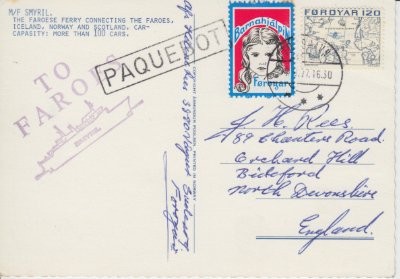 M/F SMYRIL.
THE FAROESE FERRY CONNECTING THE FAROES,
ICELAND, NORWAY AND SCOTLAND. CAR-
CAPASITY: MORE THAN 100 CARS.
TO
FAROES
SMYRIL
PAQUEBOT
Barnahjálpin
Føroyar
FØROYAR 120
16.30
J. H. Rees.
89 Chanters Road
Orchard Hill
Bideford
North Devonshire
England.